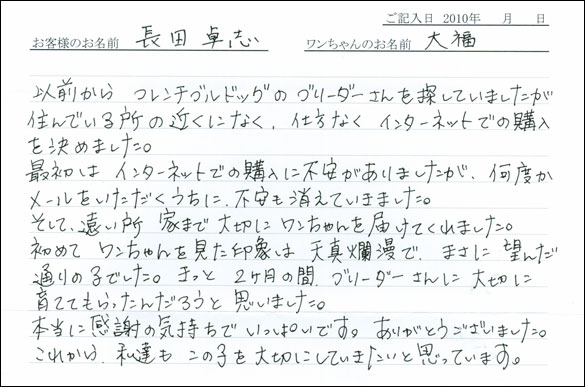 ご記入日 2010年　月　日
お客様のお名前 長田 卓志 ワンちゃんのお名前 大福
以前から フレンチブルドッグの ブリーダーさんを探していましたが
住んでいる所の近くになく、仕方なく インターネットでの購入
を決めました。
最初は インターネットでの購入に不安がありましたが、何度か
メールをいただくうちに、不安も消えていきました。
そして、遠い所 家まで大切にワンちゃんを届けてくれました。
初めて ワンちゃんを見た印象は 天真爛漫で、まさに 望んだ
通りの子でした。きっと 2ヶ月の間、ブリーダーさんに 大切に
育ててもらったんだろうと 思いました。
本当に感謝の気持ちで いっぱいです。ありがとうございました。
これから、私達も この子を大切にしていきたいと思っています。